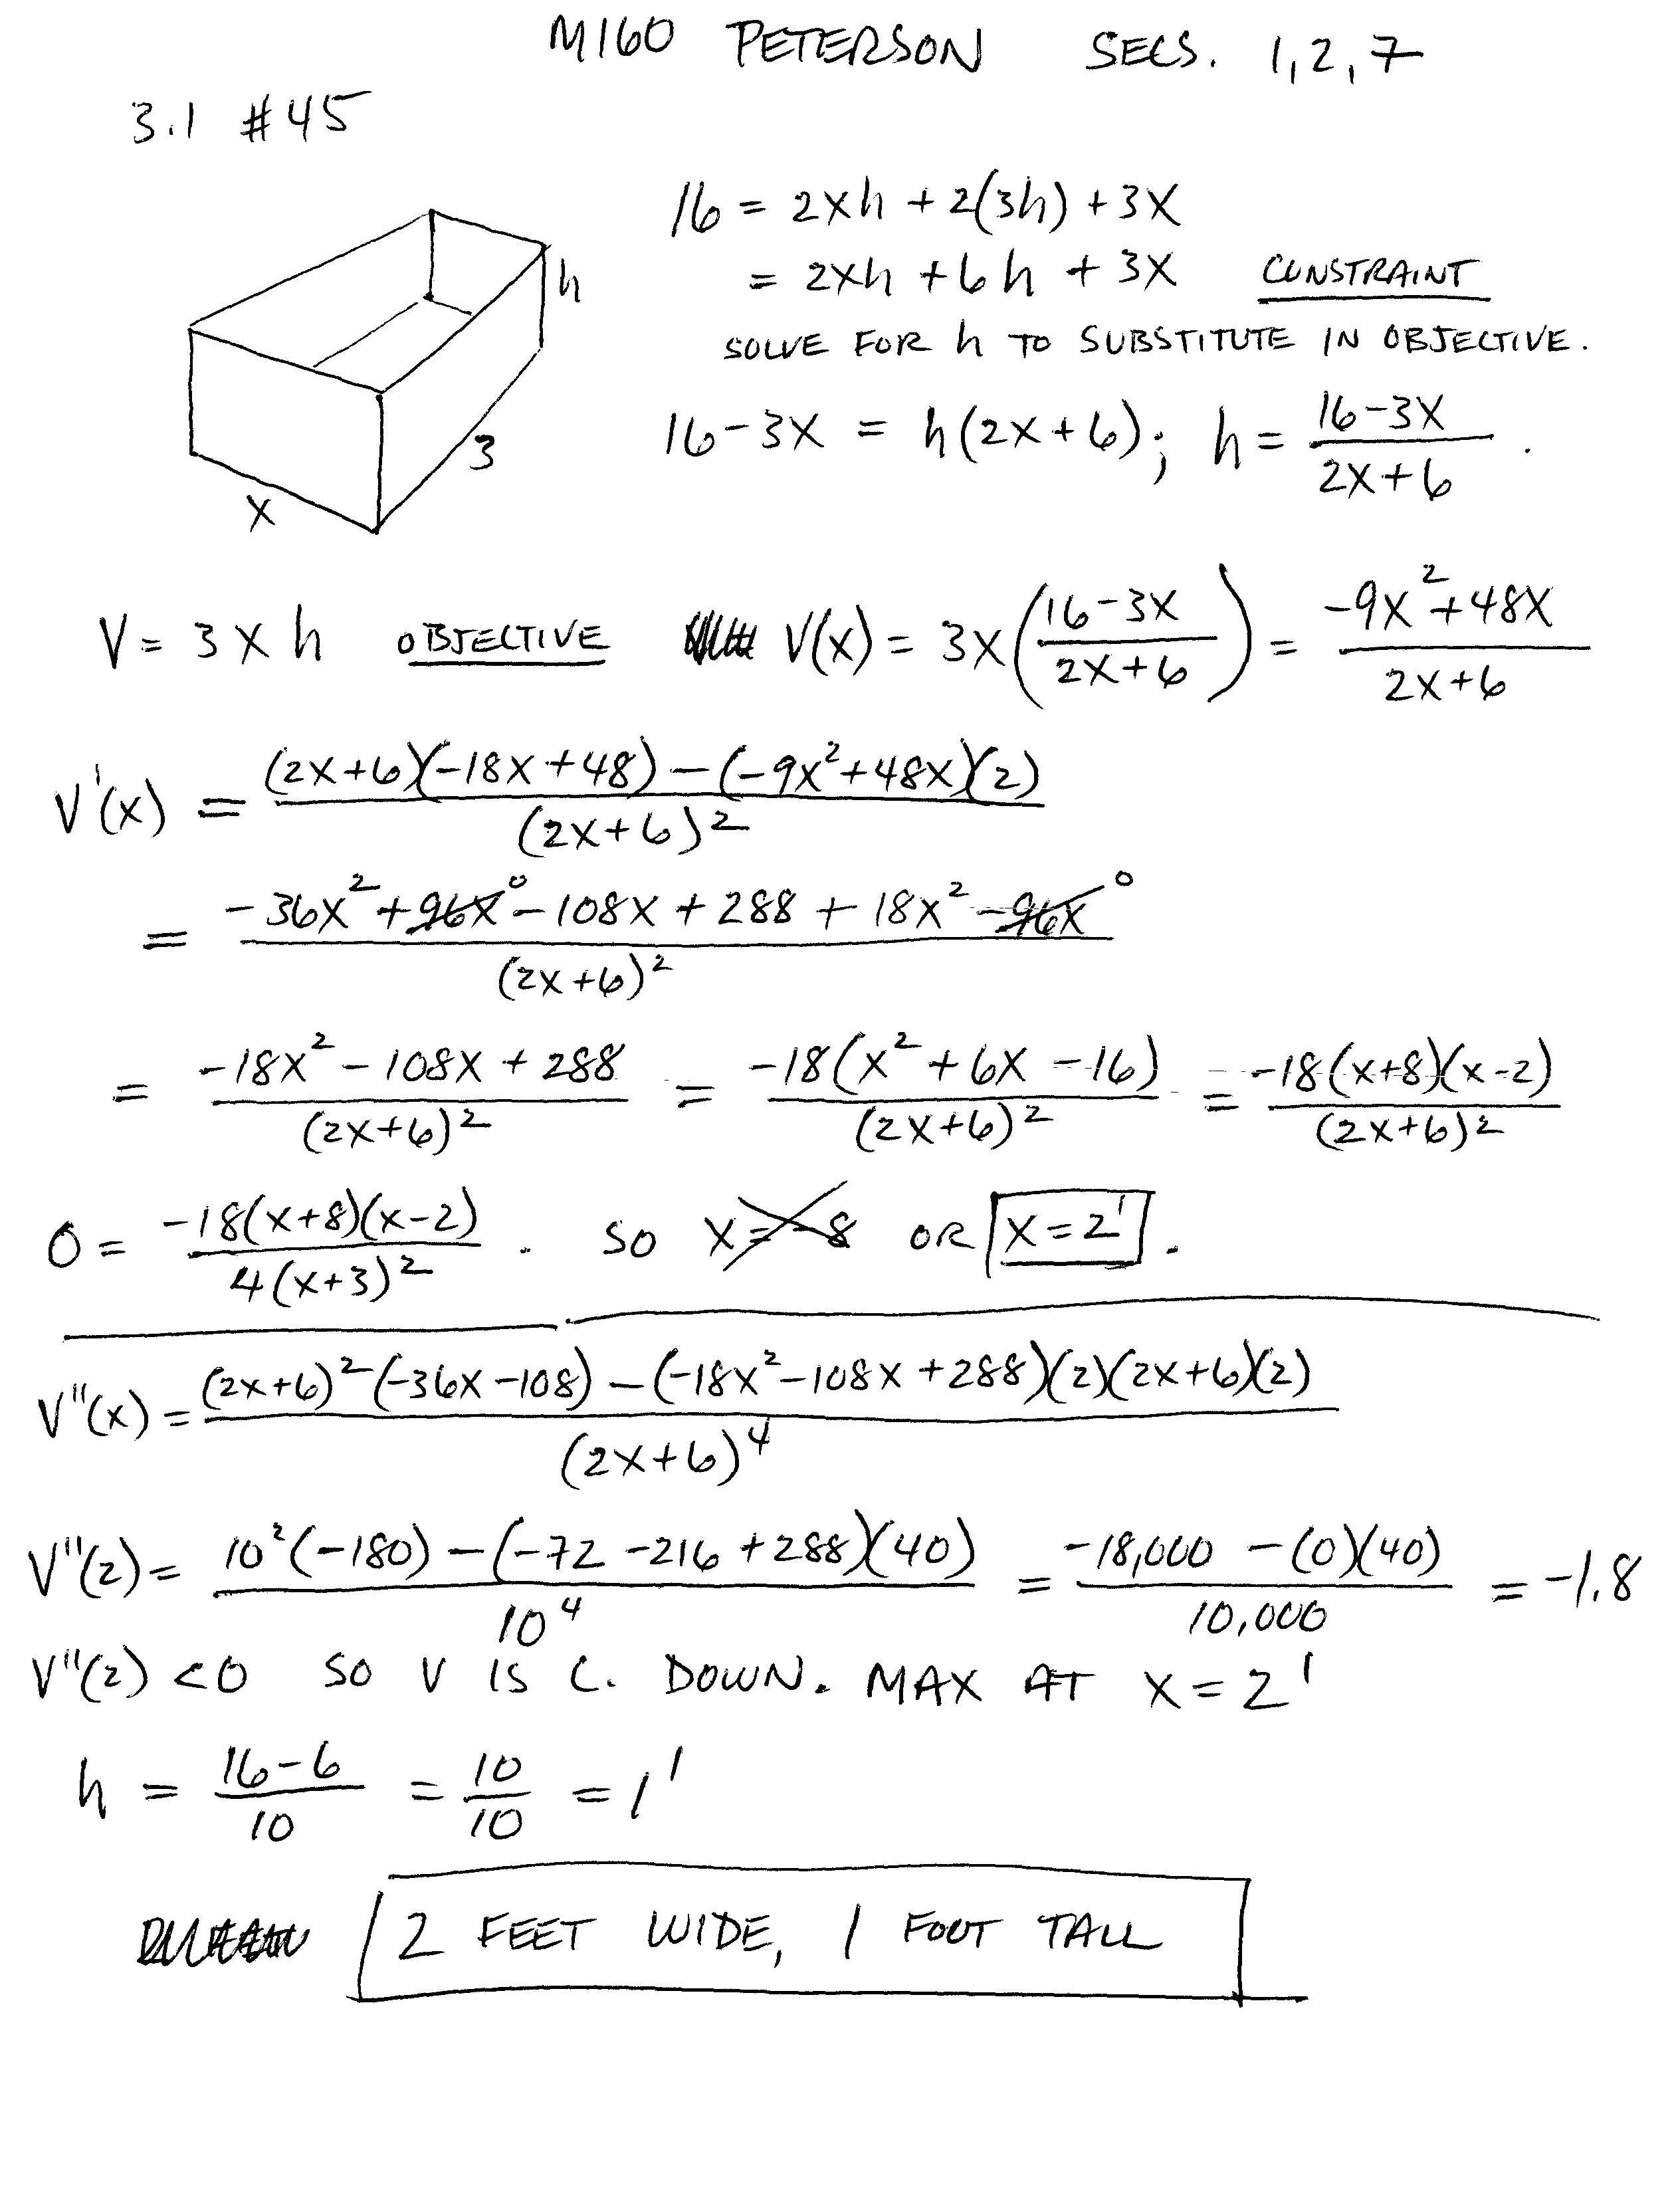 M160 PETERSON SECS. 1,2,7
3.1 #45
16 = 2xh + 2(3h) + 3x
= 2xh + 6h + 3x CONSTRAINT
SOLVE FOR h TO SUBSTITUTE IN OBJECTIVE.
16-3x = h(2x+6); h = (16-3x)/(2x+6).
h
3
x
V = 3xh OBJECTIVE V(x) = 3x((16-3x)/(2x+6)) = (-9x²+48x)/(2x+6)
V'(x) = ((2x+6)(-18x+48) - (-9x²+48x)(2))/(2x+6)²
= (-36x² + 96x⁰ - 108x + 288 + 18x² - 96x⁰)/(2x+6)²
= (-18x² - 108x + 288)/(2x+6)² = (-18(x² + 6x - 16))/(2x+6)² = (-18(x+8)(x-2))/(2x+6)²
0 = (-18(x+8)(x-2))/(4(x+3)²). SO x = -8 OR x = 2'.
V''(x) = ((2x+6)²(-36x-108) - (-18x²-108x+288)(2)(2x+6)(2))/(2x+6)⁴
V''(2) = (10²(-180) - (-72-216+288)(40))/10⁴ = (-18,000 - (0)(40))/10,000 = -1.8
V''(2) < 0 SO V IS C. DOWN. MAX AT x = 2'
h = (16-6)/10 = 10/10 = 1'
2 FEET WIDE, 1 FOOT TALL